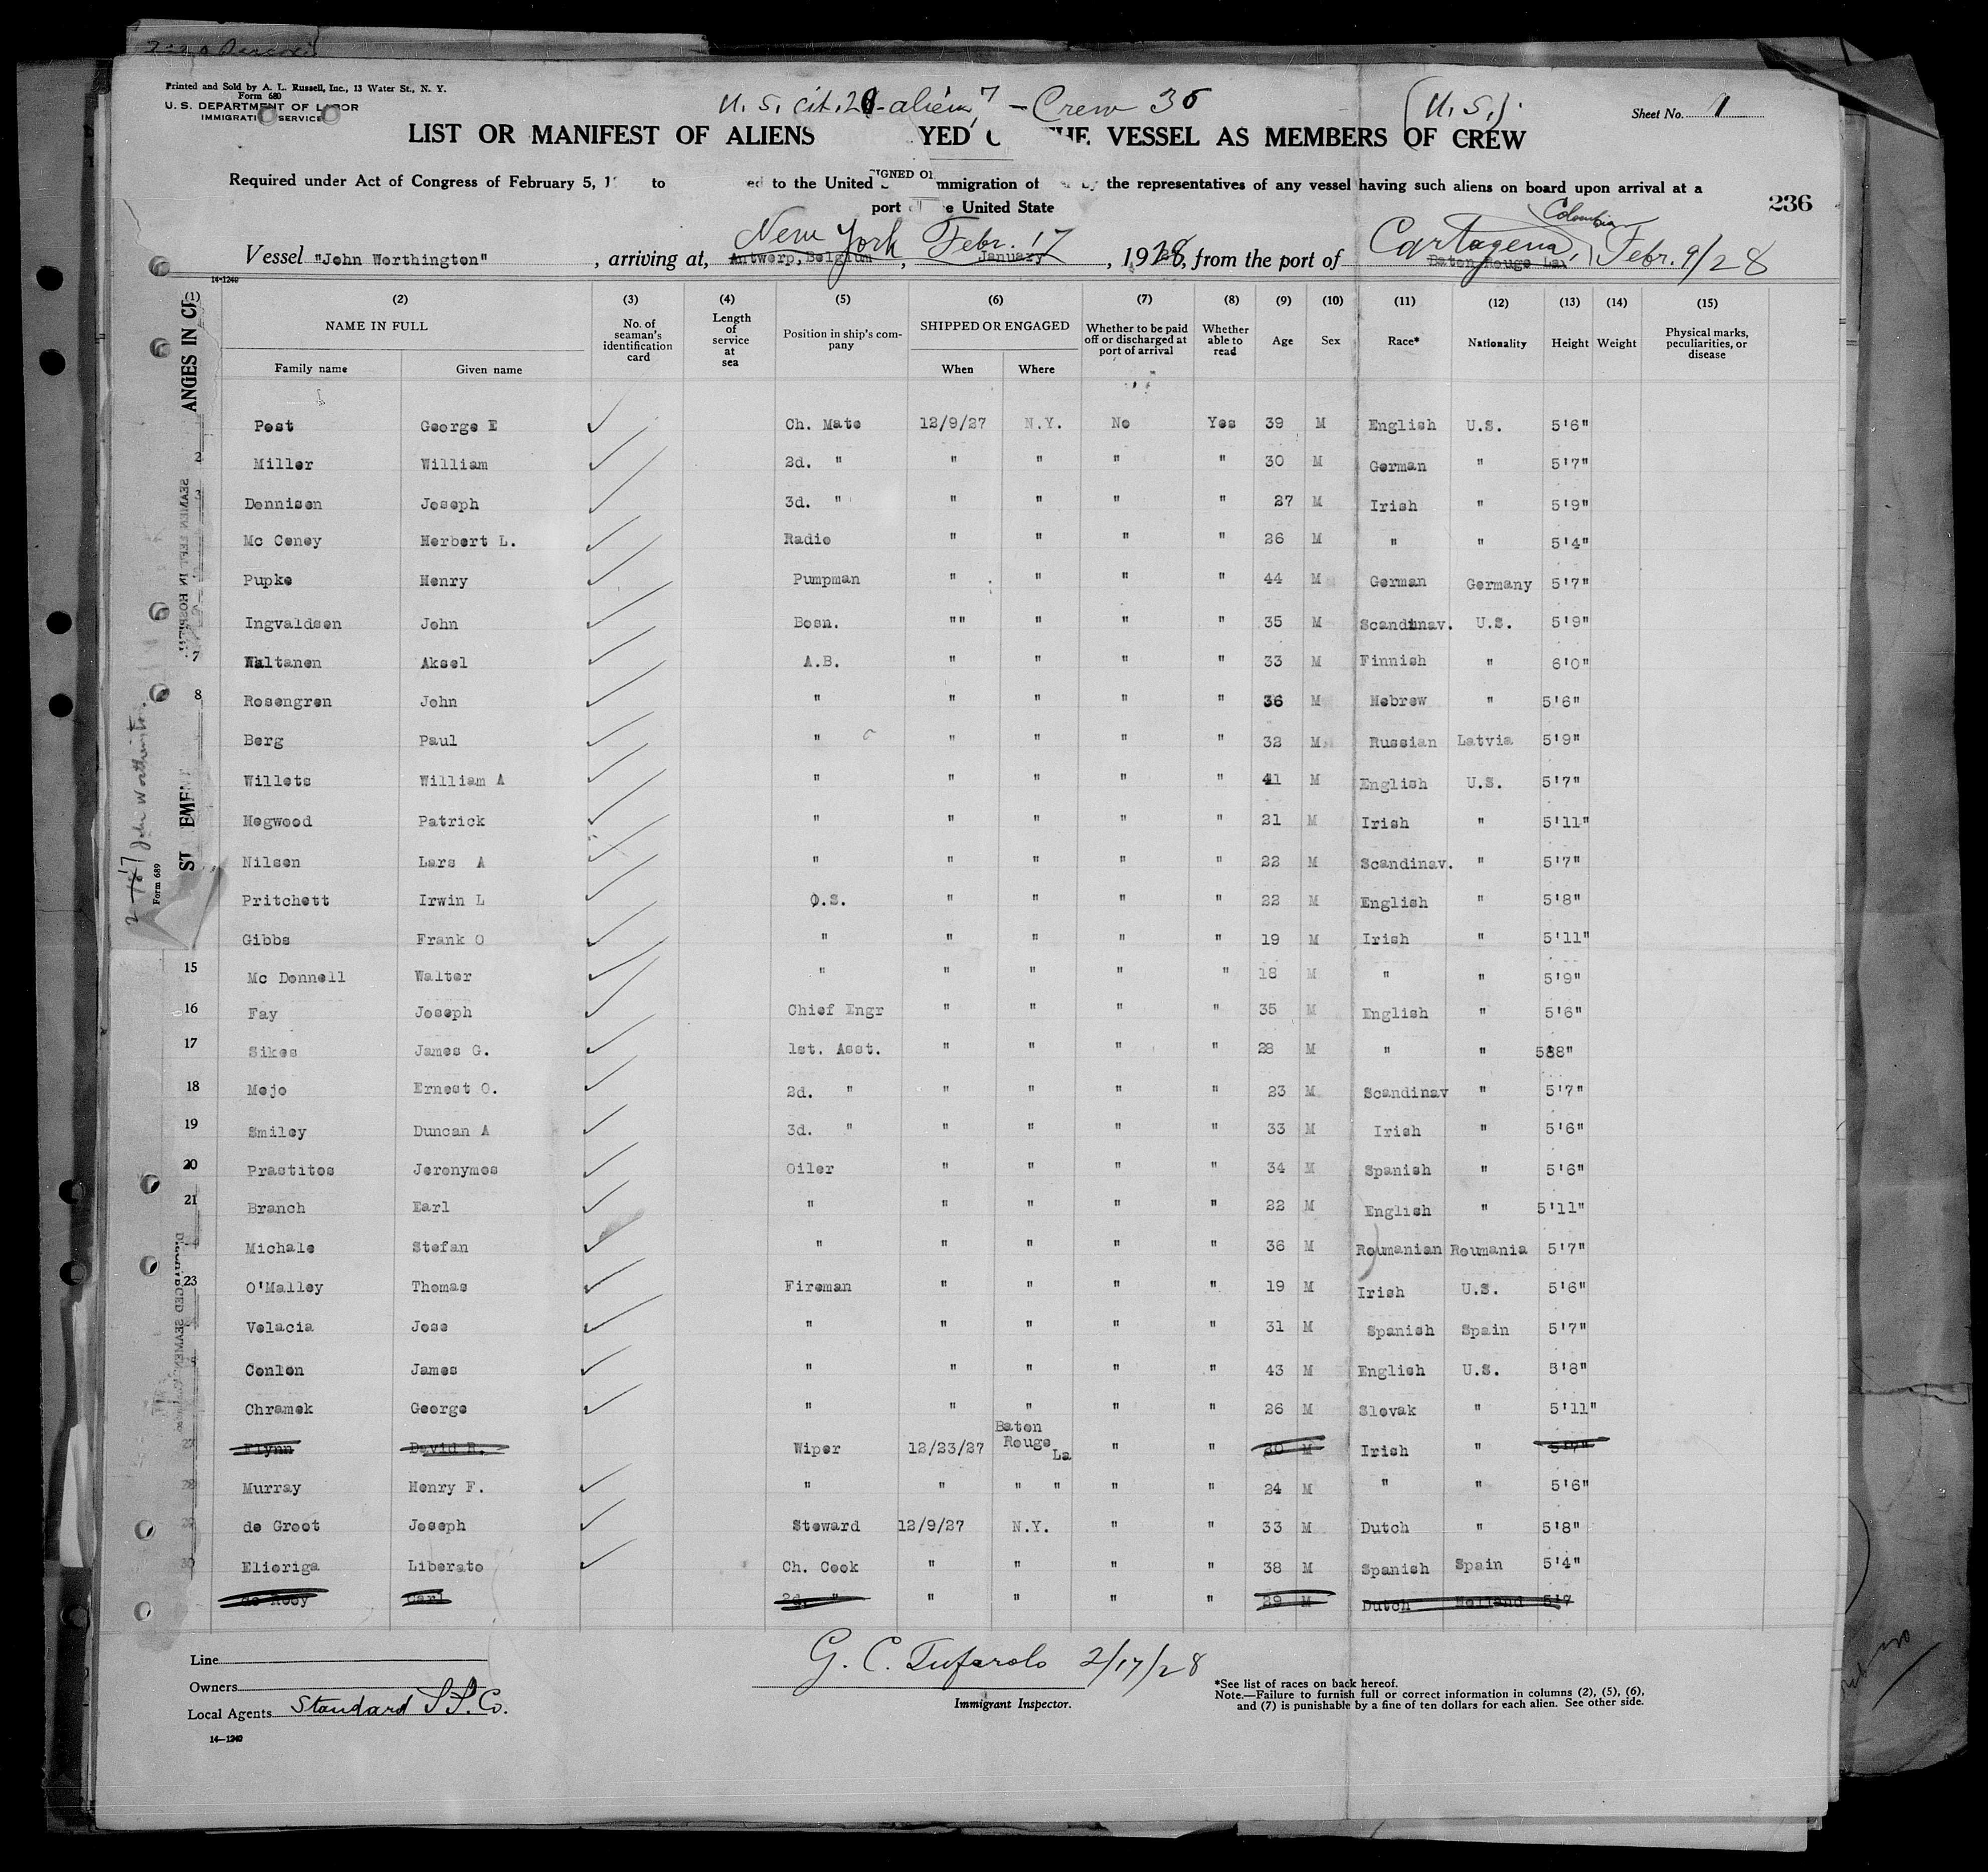 Printed and Sold by A. L. Russell, Inc., 13 Water St., N. Y.
Form 680
U. S. DEPARTMENT OF LABOR
IMMIGRATION SERVICE
U. S. cit. 28 - aliens 7 - Crew 35
(U. S.)
Sheet No. 1
LIST OR MANIFEST OF ALIENS YED THE VESSEL AS MEMBERS OF CREW
Required under Act of Congress of February 5, to ed to the United mmigration of by the representatives of any vessel having such aliens on board upon arrival at a
SIGNED
port e United State
236
Colombia
New York Febr. 17 Cartagena, Febr. 9/28
Vessel "John Worthington", arriving at, Antwerp, Belgium, January, 1928, from the port of Baton Rouge La.
14-1240
(1) (2) (3) (4) (5) (6) (7) (8) (9) (10) (11) (12) (13) (14) (15)
NAME IN FULL
Family name Given name
No. of seaman's identification card
Length of service at sea
Position in ship's company
SHIPPED OR ENGAGED
When Where
Whether to be paid off or discharged at port of arrival
Whether able to read
Age Sex Race* Nationality Height Weight
Physical marks, peculiarities, or disease
Post George E Ch. Mate 12/9/27 N.Y. No Yes 39 M English U.S. 5'6"
2 Miller William 2d. " " " " " 30 M German " 5'7"
Dennisen Joseph 3d. " " " " " 27 M Irish " 5'9"
Mc Ceney Herbert L. Radio " " " " 26 M " " 5'4"
Pupke Henry Pumpman " " " " 44 M German Germany 5'7"
Ingvaldsen John Bosn. "" " " " 35 M Scandinav. U.S. 5'9"
7 Waltanen Aksel A.B. " " " " 33 M Finnish " 6'0"
8 Rosengren John " " " " " 36 M Hebrew " 5'6"
Berg Paul " " " " " 32 M Russian Latvia 5'9"
Willets William A " " " " " 41 M English U.S. 5'7"
Hegwood Patrick " " " " " 21 M Irish " 5'11"
Nilsen Lars A " " " " " 22 M Scandinav. " 5'7"
Pritchett Irwin L O.S. " " " " 22 M English " 5'8"
Gibbs Frank O " " " " " 19 M Irish " 5'11"
15 Mc Donnell Walter " " " " " 18 M " " 5'9"
16 Fay Joseph Chief Engr " " " " 35 M English " 5'6"
17 Sikes James G. 1st. Asst. " " " " 28 M " " 588"
18 Mejo Ernest O. 2d. " " " " " 23 M Scandinav " 5'7"
19 Smiley Duncan A 3d. " " " " " 33 M Irish " 5'6"
20 Prastitos Jeronymos Oiler " " " " 34 M Spanish " 5'6"
21 Branch Earl " " " " " 22 M English " 5'11"
Michale Stefan " " " " " 36 M Roumanian Roumania 5'7"
23 O'Malley Thomas Fireman " " " " 19 M Irish U.S. 5'6"
Velacia Jose " " " " " 31 M Spanish Spain 5'7"
Conlon James " " " " " 43 M English U.S. 5'8"
Chramek George " " " " " 26 M Slovak " 5'11"
27 Flynn David R. Wiper 12/23/27 Baton Rouge La " " 20 M Irish " 5'7"
28 Murray Henry F. " " " " " " 24 M " " 5'6"
29 de Groot Joseph Steward 12/9/27 N.Y. " " 33 M Dutch " 5'8"
30 Elioriga Liberato Ch. Cook " " " " 38 M Spanish Spain 5'4"
de Rosy Carl 2d. " " " " " 29 M Dutch Holland 5'7
Line
Owners
Local Agents Standard S.S. Co.
14-1240
G. C. Tufarolo 2/17/28
Immigrant Inspector.
*See list of races on back hereof.
Note.—Failure to furnish full or correct information in columns (2), (5), (6),
and (7) is punishable by a fine of ten dollars for each alien. See other side.
ANGES IN
SEAMEN LEFT IN HOSPITAL
John Worthington
Form 689